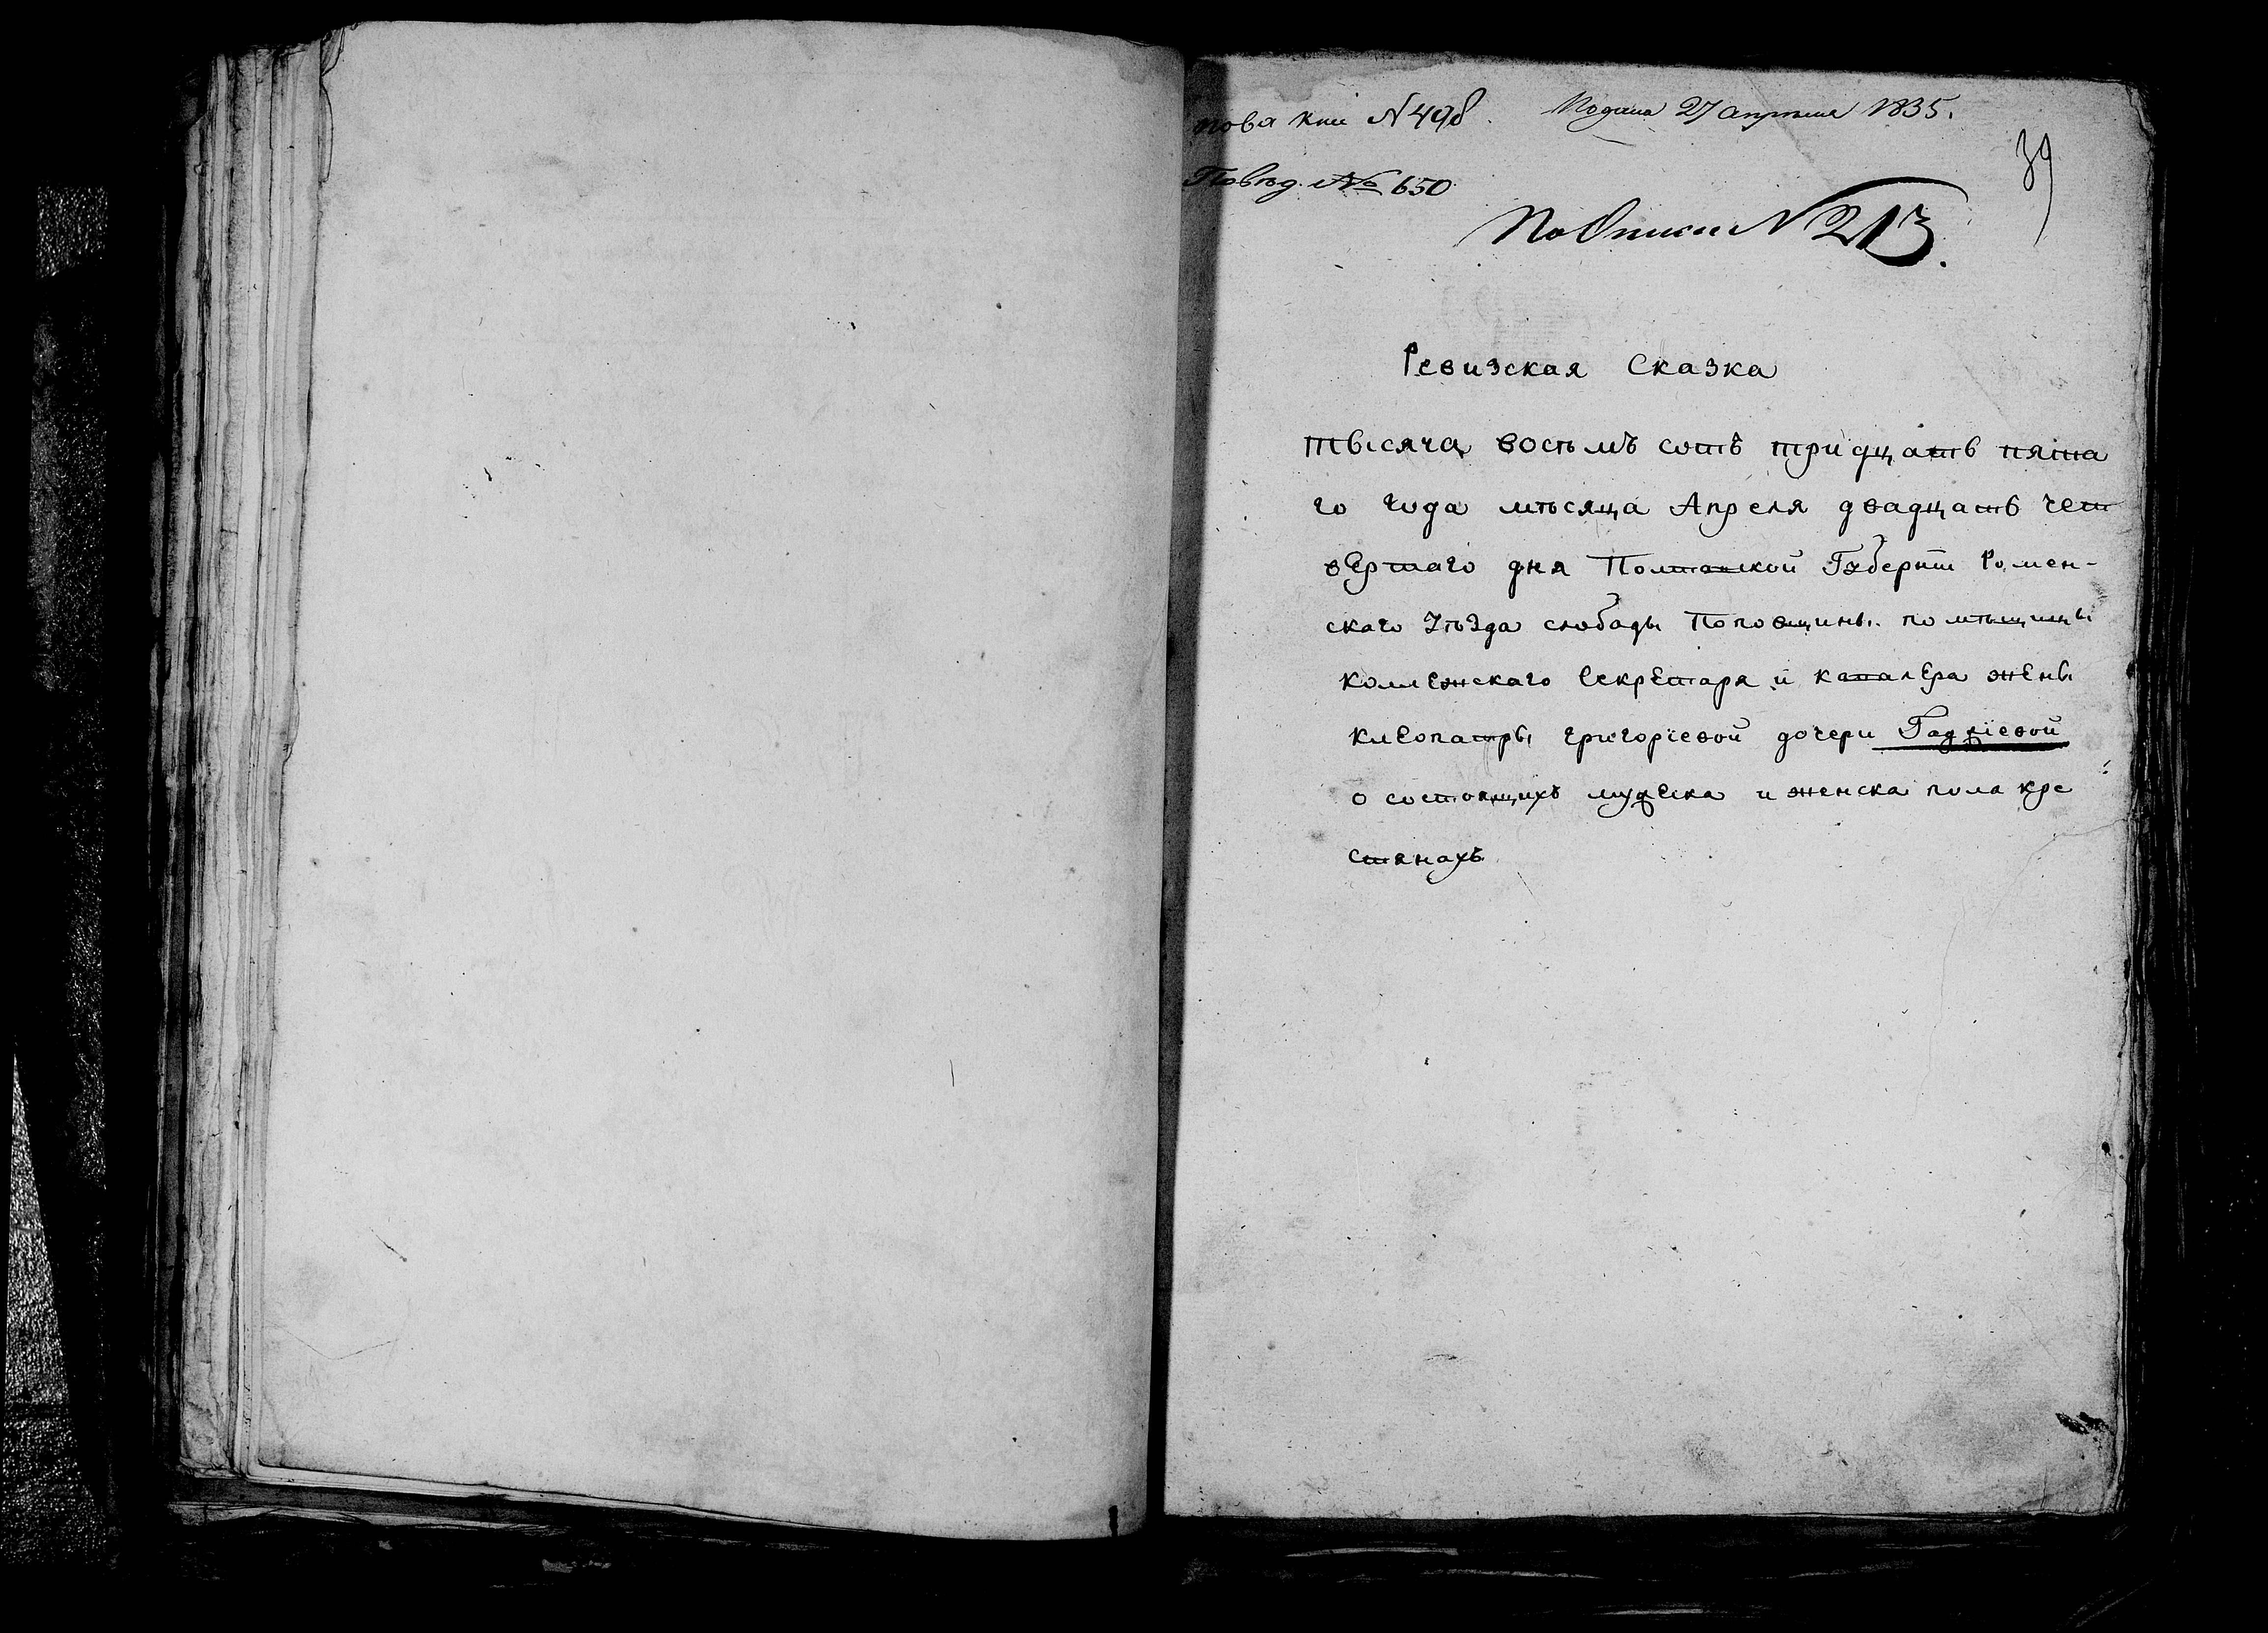 Подана 27 апреля 1835.
39
Повѣд. № 650
По Описи N 213.
Ревизская Сказка
тысяча восѣмъ сотъ тридцать пята
го года мѣсяца Апреля двадцать чет
вертаго дня Полтавской Губернiи Ромен-
скаго Уѣзда слободы Поповщины помѣщицы
коллежскаго секретаря и кавалера жены
клеопатры григорiевой дочери Гаджiевой
о состоящихъ мужеска и женска пола кре
стянахъ